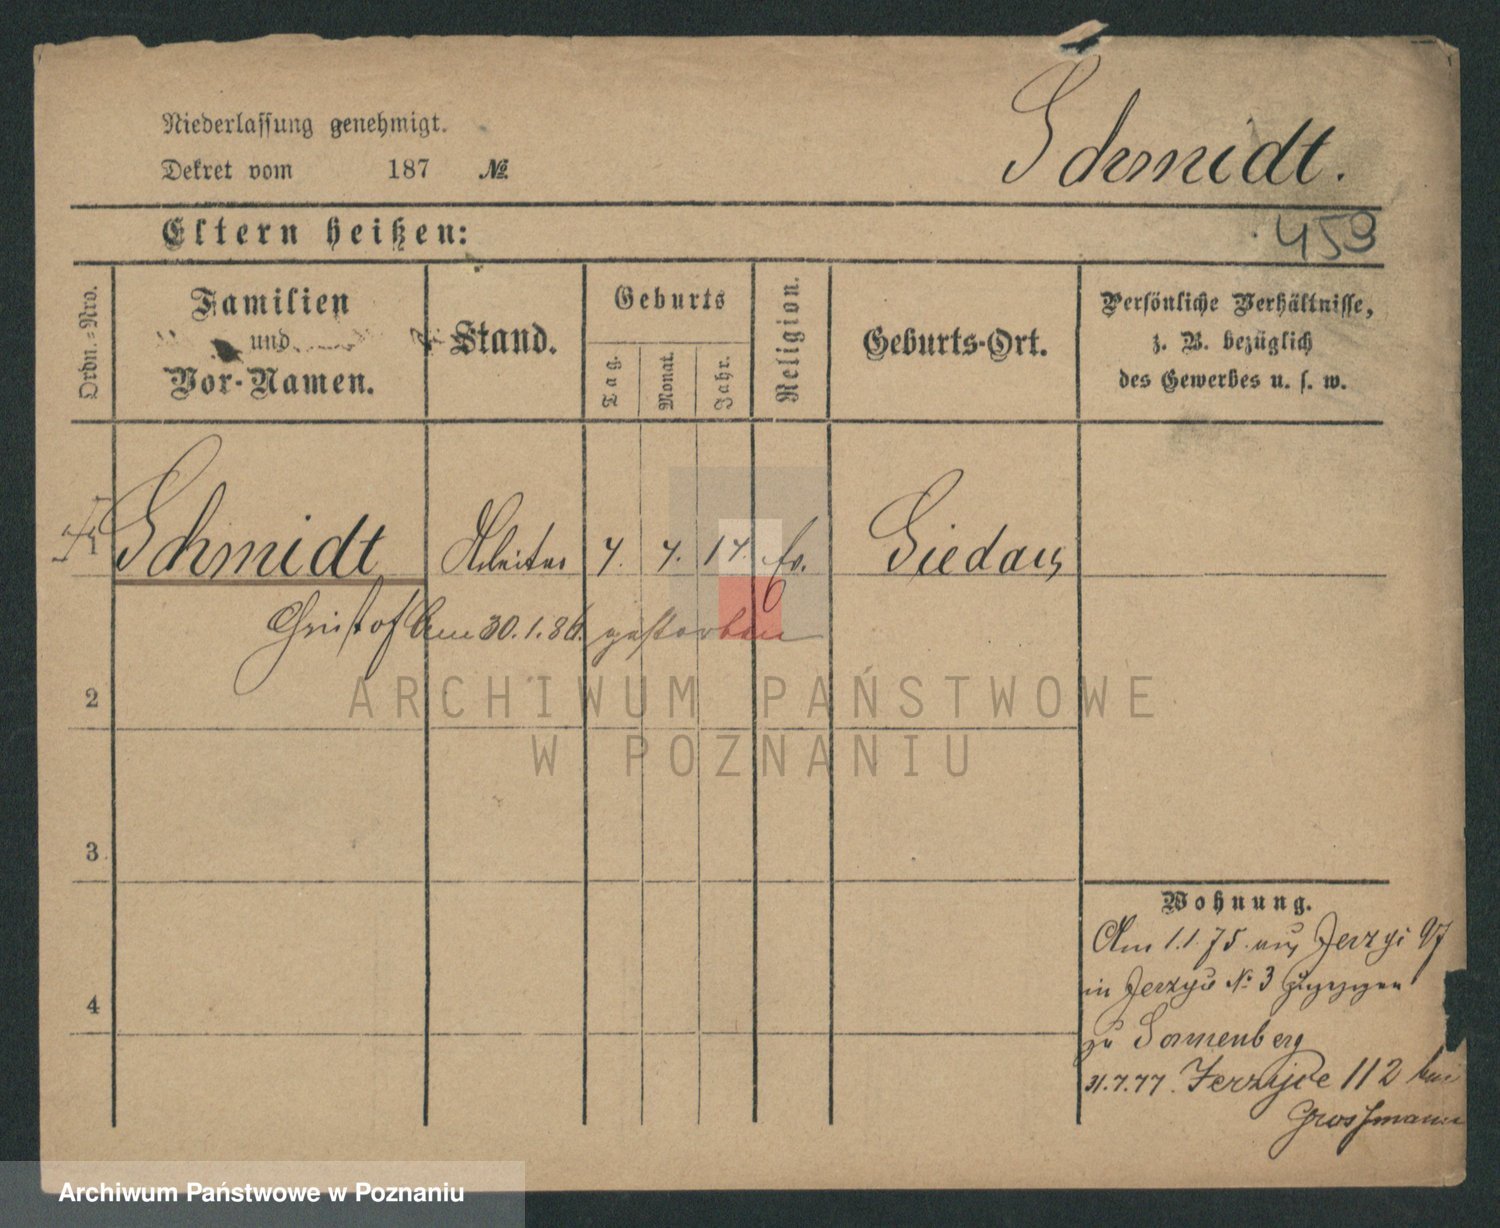 Niederlassung genehmigt.
Dekret vom 187 №
Schmidt.
Eltern heißen:
459
Ordn.-Nro.
Familien
und
Vor-Namen.
Stand.
Geburts
Tag.
Monat.
Jahr.
Religion.
Geburts-Ort.
Persönliche Verhältnisse,
z. B. bezüglich
des Gewerbes u. s. w.
1 Schmidt Arbeiter 4. 4. 14.
Christof Am 30.1.86. gestorben
2
3
4
ARCHIWUM PAŃSTWOWE
W POZNANIU
Wohnung.
Am 1.1.75 aus Jerzyi 97
in Jerzyce № 3 zugezogen
zu Sonnenberg
31.7.77. Jerzyce 112 bei
Grossmann
Archiwum Państwowe w Poznaniu